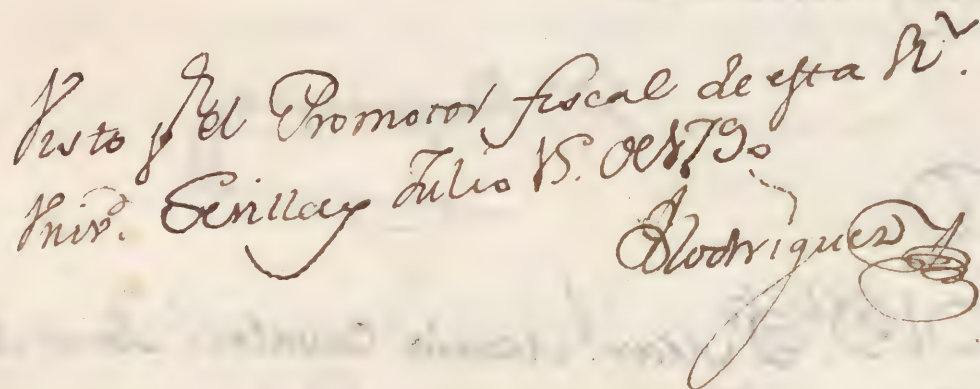 Visto p.r el Promotor fiscal de esta R.l
Univ.d Sevilla y Julio 15. de 1790
Rodriguez